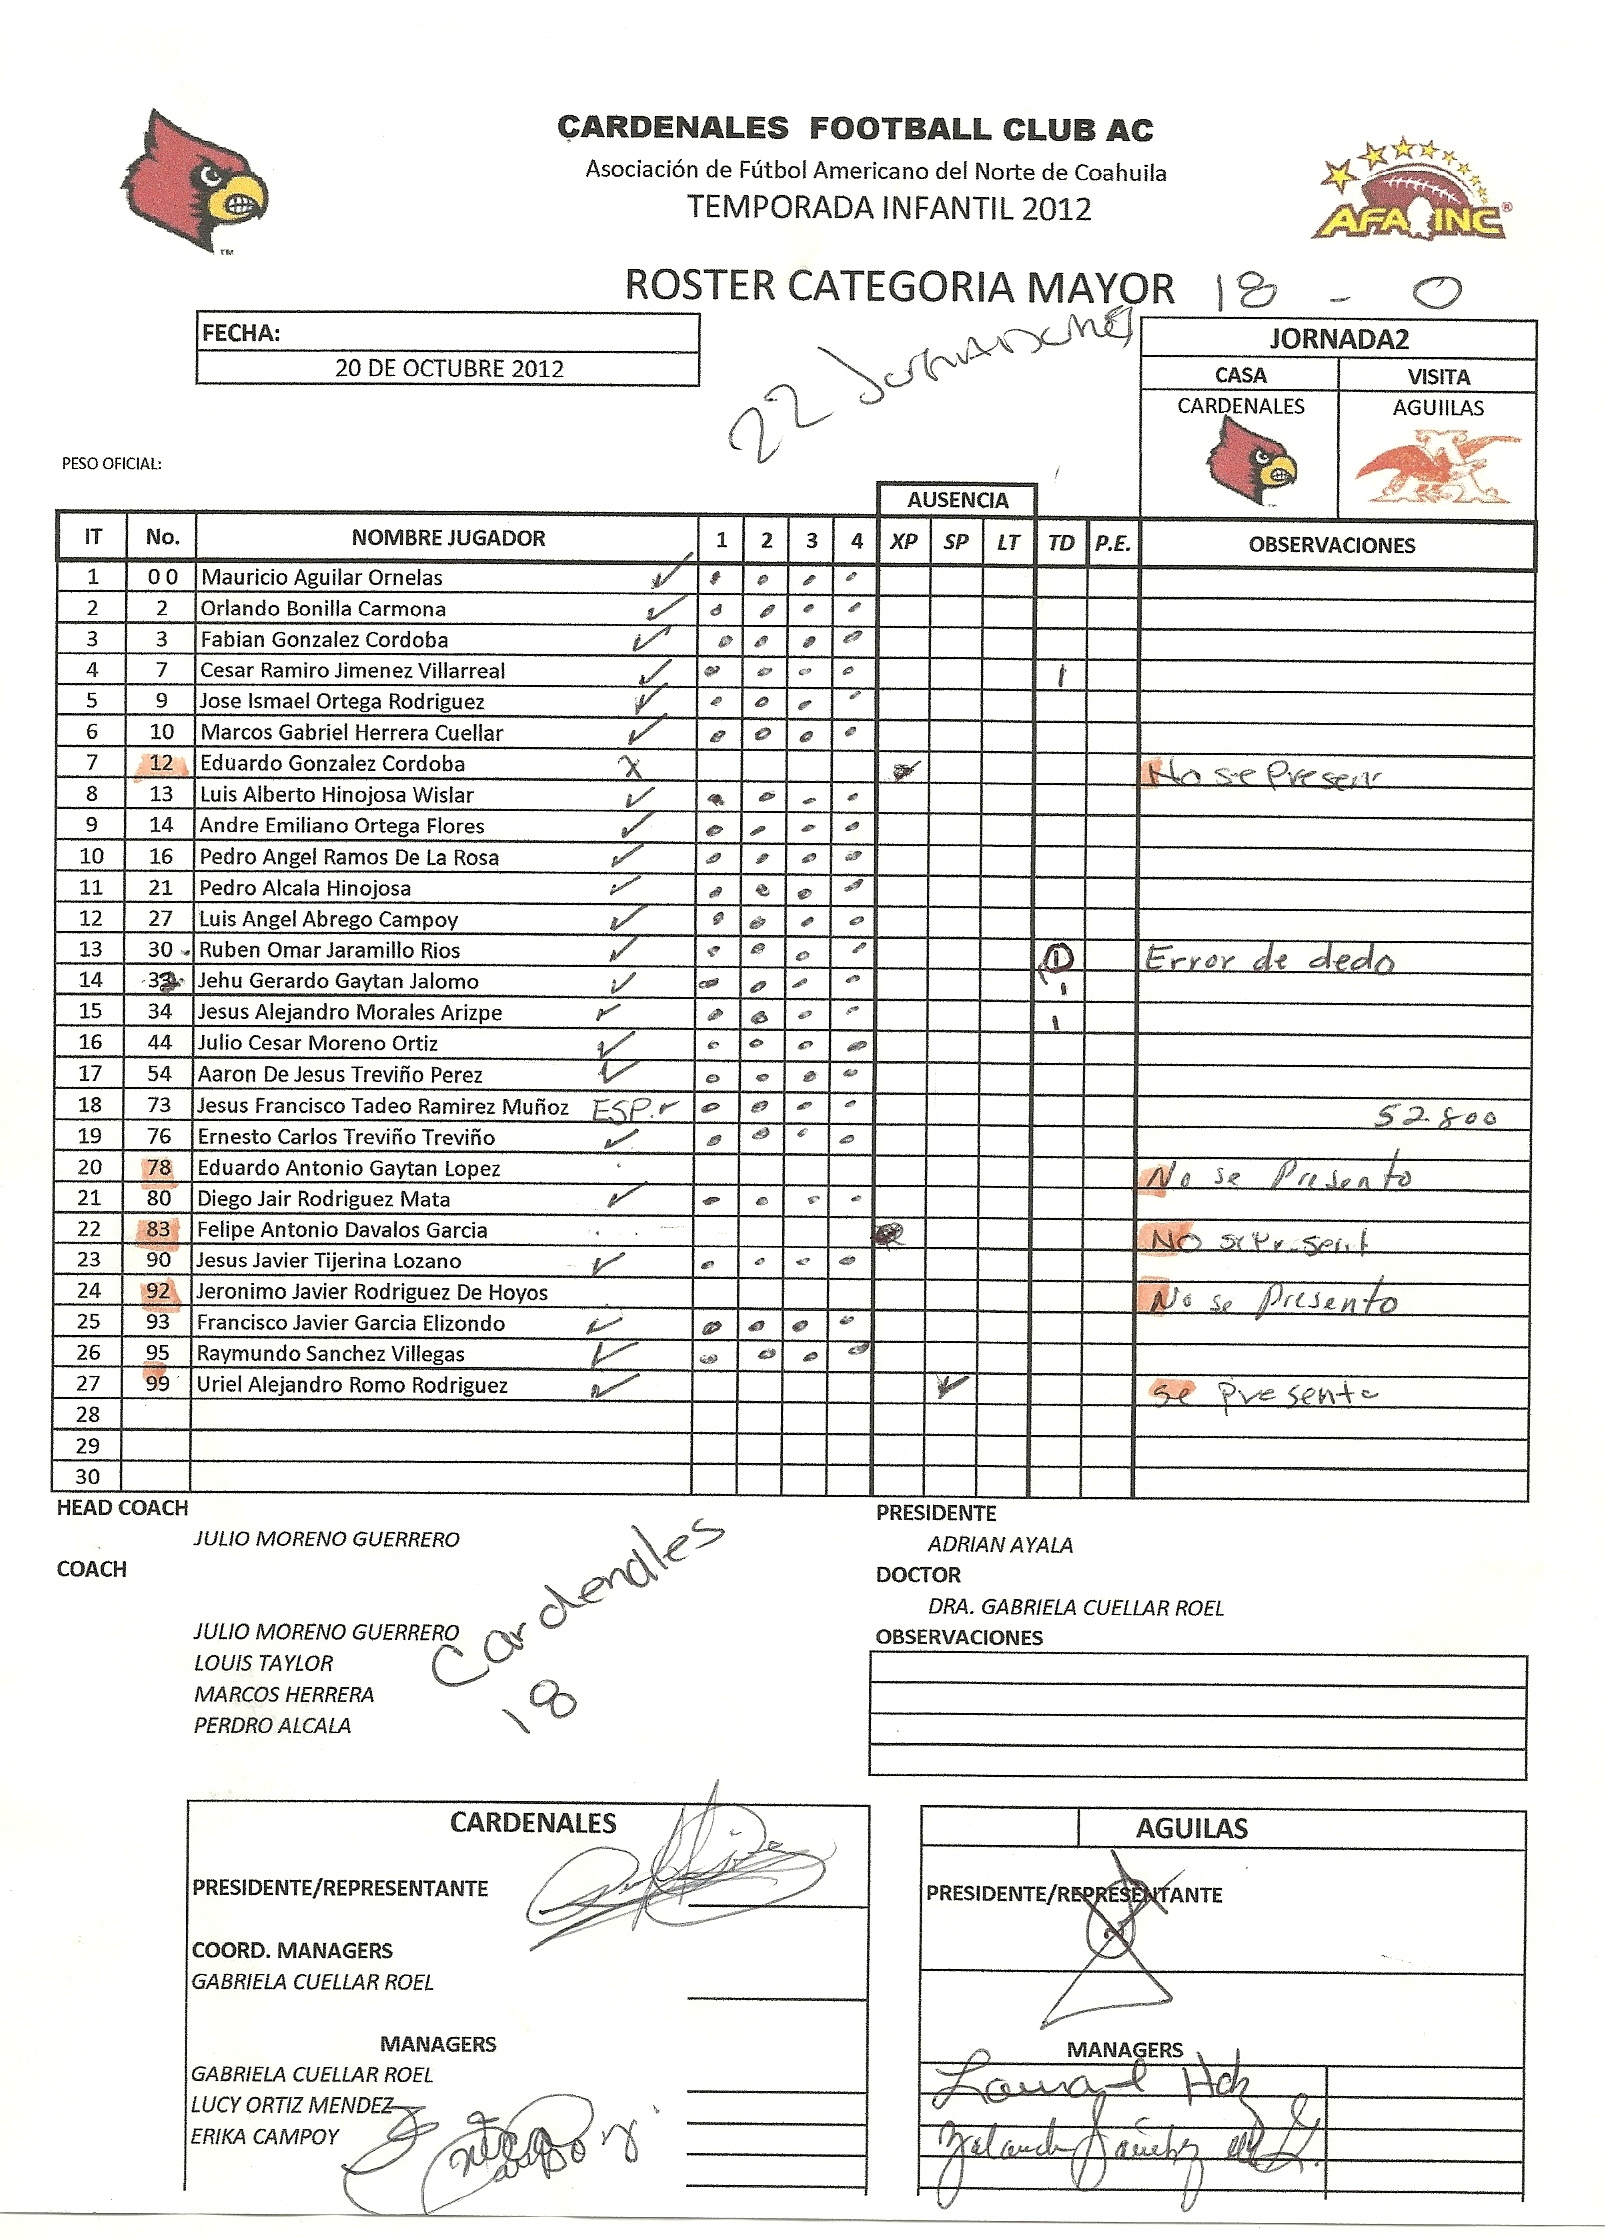 CARDENALES FOOTBALL CLUB AC
Asociación de Fútbol Americano del Norte de Coahuila
TEMPORADA INFANTIL 2012
AFA INC®
TM
ROSTER CATEGORIA MAYOR 18 - 0
FECHA:
20 DE OCTUBRE 2012
22
JORNADA2
CASA VISITA
CARDENALES AGUIILAS
PESO OFICIAL:
AUSENCIA
IT No. NOMBRE JUGADOR 1 2 3 4 XP SP LT TD P.E. OBSERVACIONES
1 00 Mauricio Aguilar Ornelas
2 2 Orlando Bonilla Carmona
3 3 Fabian Gonzalez Cordoba
4 7 Cesar Ramiro Jimenez Villarreal 1
5 9 Jose Ismael Ortega Rodriguez
6 10 Marcos Gabriel Herrera Cuellar
7 12 Eduardo Gonzalez Cordoba X No se Present
8 13 Luis Alberto Hinojosa Wislar
9 14 Andre Emiliano Ortega Flores
10 16 Pedro Angel Ramos De La Rosa
11 21 Pedro Alcala Hinojosa
12 27 Luis Angel Abrego Campoy
13 30 Ruben Omar Jaramillo Rios 1 Error de dedo
14 Jehu Gerardo Gaytan Jalomo 1
15 34 Jesus Alejandro Morales Arizpe 1
16 44 Julio Cesar Moreno Ortiz
17 54 Aaron De Jesus Treviño Perez
18 73 Jesus Francisco Tadeo Ramirez Muñoz ESP. 52.800
19 76 Ernesto Carlos Treviño Treviño
20 78 Eduardo Antonio Gaytan Lopez No se Presento
21 80 Diego Jair Rodriguez Mata
22 83 Felipe Antonio Davalos Garcia NO se Present
23 90 Jesus Javier Tijerina Lozano
24 92 Jeronimo Javier Rodriguez De Hoyos No se Presento
25 93 Francisco Javier Garcia Elizondo
26 95 Raymundo Sanchez Villegas
27 99 Uriel Alejandro Romo Rodriguez se presento
28
29
30
HEAD COACH
JULIO MORENO GUERRERO
COACH
JULIO MORENO GUERRERO
LOUIS TAYLOR
MARCOS HERRERA
PERDRO ALCALA
Cardenales
18
PRESIDENTE
ADRIAN AYALA
DOCTOR
DRA. GABRIELA CUELLAR ROEL
OBSERVACIONES
CARDENALES
PRESIDENTE/REPRESENTANTE
COORD. MANAGERS
GABRIELA CUELLAR ROEL
MANAGERS
GABRIELA CUELLAR ROEL
LUCY ORTIZ MENDEZ
ERIKA CAMPOY
AGUILAS
PRESIDENTE/REPRESENTANTE
MANAGERS